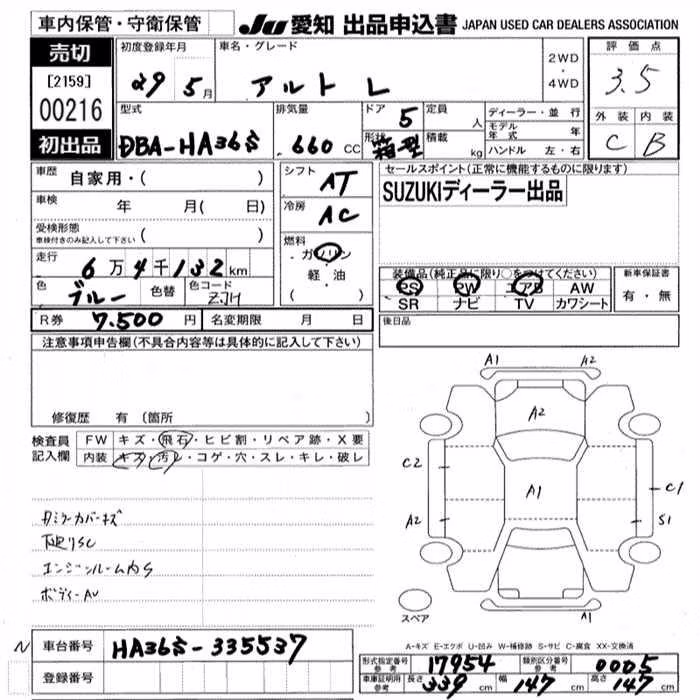 車内保管・守衛保管
JU 愛知 出品申込書 JAPAN USED CAR DEALERS ASSOCIATION
売切
[2159]
00216
初出品
初度登録年月
29 5月
車名・グレード
アルト L
2WD
・
4WD
評価点
3.5
外装 内装
C B
型式
DBA-HA36S
排気量
660 CC
ドア 5
形状 箱型
定員 人
積載 kg
ディーラー・並行
モデル年式 年
ハンドル 左・右
車歴 自家用・( )
車検 年 月( 日)
受検形態
車検付きのみ記入して下さい ( )
走行 6万4千132km
色 ブルー 色替 色コード ZJH
シフト AT
冷房 AC
燃料
ガソリン
軽・油
( )
セールスポイント(正常に機能するものに限ります)
SUZUKIディーラー出品
装備品(純正品に限り○をつけてください)
PS PW エアB AW
SR ナビ TV カワシート
新車保証書
有・無
R券 7.500円 名変期限 月 日
後日品
注意事項申告欄(不具合内容等は具体的に記入して下さい)
修復歴 有(箇所 )
検査員記入欄
FW キズ・飛石・ヒビ割・リペア跡・X要
内装 キズ・汚レ・コゲ・穴・スレ・キレ・破レ
A1 A2
A2
C2
A1
C1
A2
S1
A1
スペア
ミラーカバーキズ
下廻りSC
エンジンルーム内S
ボディーAU
A-キズ E-エクボ U-凹み W-補修跡 S-サビ C-腐食 XX-交換済
N 車台番号 HA36S-335537
登録番号
形式指定番号 参考 17954 類別区分番号 参考 0005
車庫証明用 参考 長さ 339 cm 幅 147 cm 高さ 147 cm